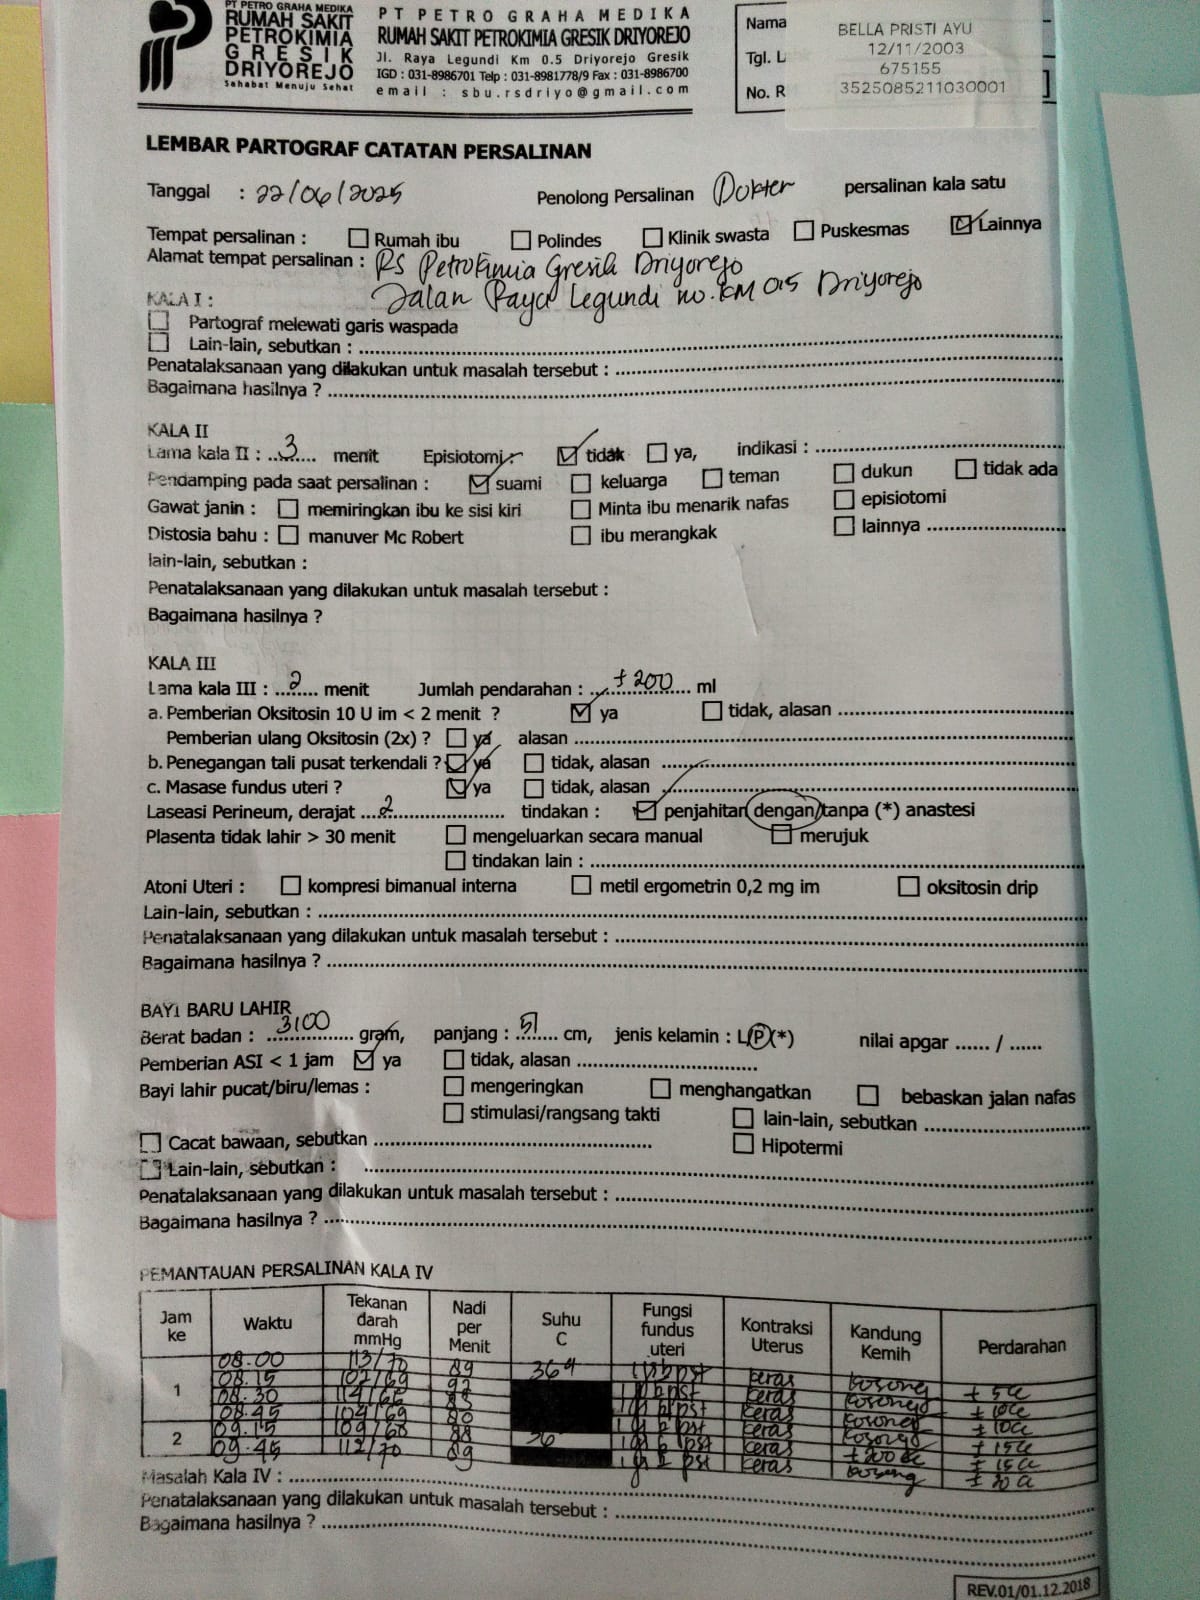 PT PETRO GRAHA MEDIKA
RUMAH SAKIT
PETROKIMIA
GRESIK
DRIYOREJO
Sahabat Menuju Sehat
PT PETRO GRAHA MEDIKA
RUMAH SAKIT PETROKIMIA GRESIK DRIYOREJO
Jl. Raya Legundi Km 0.5 Driyorejo Gresik
IGD : 031-8986701 Telp : 031-8981778/9 Fax : 031-8986700
email : sbu.rsdriyo@gmail.com
Nama
Tgl. L
No. R
BELLA PRISTI AYU
12/11/2003
675155
3525085211030001
LEMBAR PARTOGRAF CATATAN PERSALINAN
Tanggal : 22/06/2025 Penolong Persalinan Dokter persalinan kala satu
Tempat persalinan : Rumah ibu Polindes Klinik swasta Puskesmas Lainnya
Alamat tempat persalinan : RS Petrokimia Gresik Driyorejo
Jalan Raya Legundi no. KM 0.5 Driyorejo
KALA I :
Partograf melewati garis waspada
Lain-lain, sebutkan :
Penatalaksanaan yang dilakukan untuk masalah tersebut :
Bagaimana hasilnya ?
KALA II
Lama kala II : 3 menit Episiotomi : tidak ya, indikasi :
Pendamping pada saat persalinan : suami keluarga teman dukun tidak ada
Gawat janin : memiringkan ibu ke sisi kiri Minta ibu menarik nafas episiotomi
Distosia bahu : manuver Mc Robert ibu merangkak lainnya
lain-lain, sebutkan :
Penatalaksanaan yang dilakukan untuk masalah tersebut :
Bagaimana hasilnya ?
KALA III
Lama kala III : 2 menit Jumlah pendarahan : ± 200 ml
a. Pemberian Oksitosin 10 U im < 2 menit ? ya tidak, alasan
Pemberian ulang Oksitosin (2x) ? ya alasan
b. Penegangan tali pusat terkendali ? ya tidak, alasan
c. Masase fundus uteri ? ya tidak, alasan
Laseasi Perineum, derajat 2 tindakan : penjahitan dengan/tanpa (*) anastesi
Plasenta tidak lahir > 30 menit mengeluarkan secara manual merujuk
tindakan lain :
Atoni Uteri : kompresi bimanual interna metil ergometrin 0,2 mg im oksitosin drip
Lain-lain, sebutkan :
Penatalaksanaan yang dilakukan untuk masalah tersebut :
Bagaimana hasilnya ?
BAYI BARU LAHIR
Berat badan : 3100 gram, panjang : 51 cm, jenis kelamin : L/P(*) nilai apgar ...... / ......
Pemberian ASI < 1 jam ya tidak, alasan
Bayi lahir pucat/biru/lemas : mengeringkan menghangatkan bebaskan jalan nafas
stimulasi/rangsang takti lain-lain, sebutkan
Cacat bawaan, sebutkan Hipotermi
Lain-lain, sebutkan :
Penatalaksanaan yang dilakukan untuk masalah tersebut :
Bagaimana hasilnya ?
PEMANTAUAN PERSALINAN KALA IV
Jam ke Waktu Tekanan darah mmHg Nadi per Menit Suhu C Fungsi fundus uteri Kontraksi Uterus Kandung Kemih Perdarahan
1 08.00 113/70 89 36 4 keras kosong ± 5cc
08.15 102/69 92 keras kosong ± 10cc
08.30 keras kosong ± 10cc
08.45 104/69 80 keras kosong ± 15cc
2 09.15 109/68 88 36 keras ± 200 cc ± 15cc
09.45 112/70 89 keras kosong ± 20 cc
Masalah Kala IV :
Penatalaksanaan yang dilakukan untuk masalah tersebut :
Bagaimana hasilnya ?
REV.01/01.12.2018